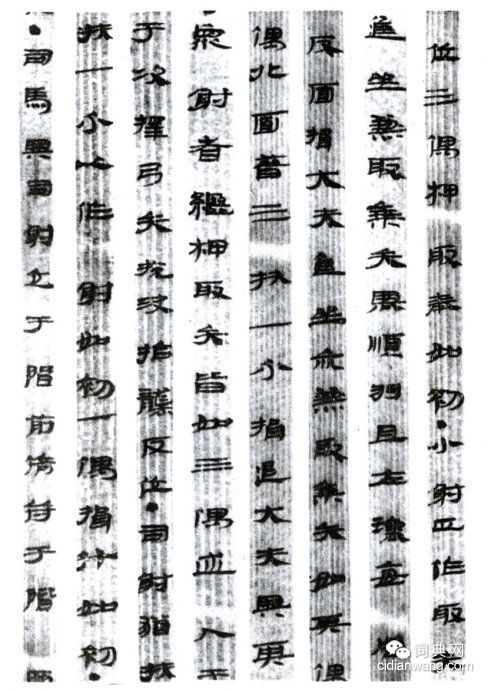 位三偶柙取矢如初●小射正作取
進坐兼取乘矢興順羽且左還毋
反面揖大夫進坐亦兼取乘矢如其偶
偶北面晉三挾一个揖退大夫興其
眾射者繼柙取矢皆如三偶遂入于
于次擇弓矢說決拾襲反位●司射猶挾
挾一个以作射如初一偶揖升如初●
●司馬與司射交于階前倚扑于階西
词典网
cidianwang.com